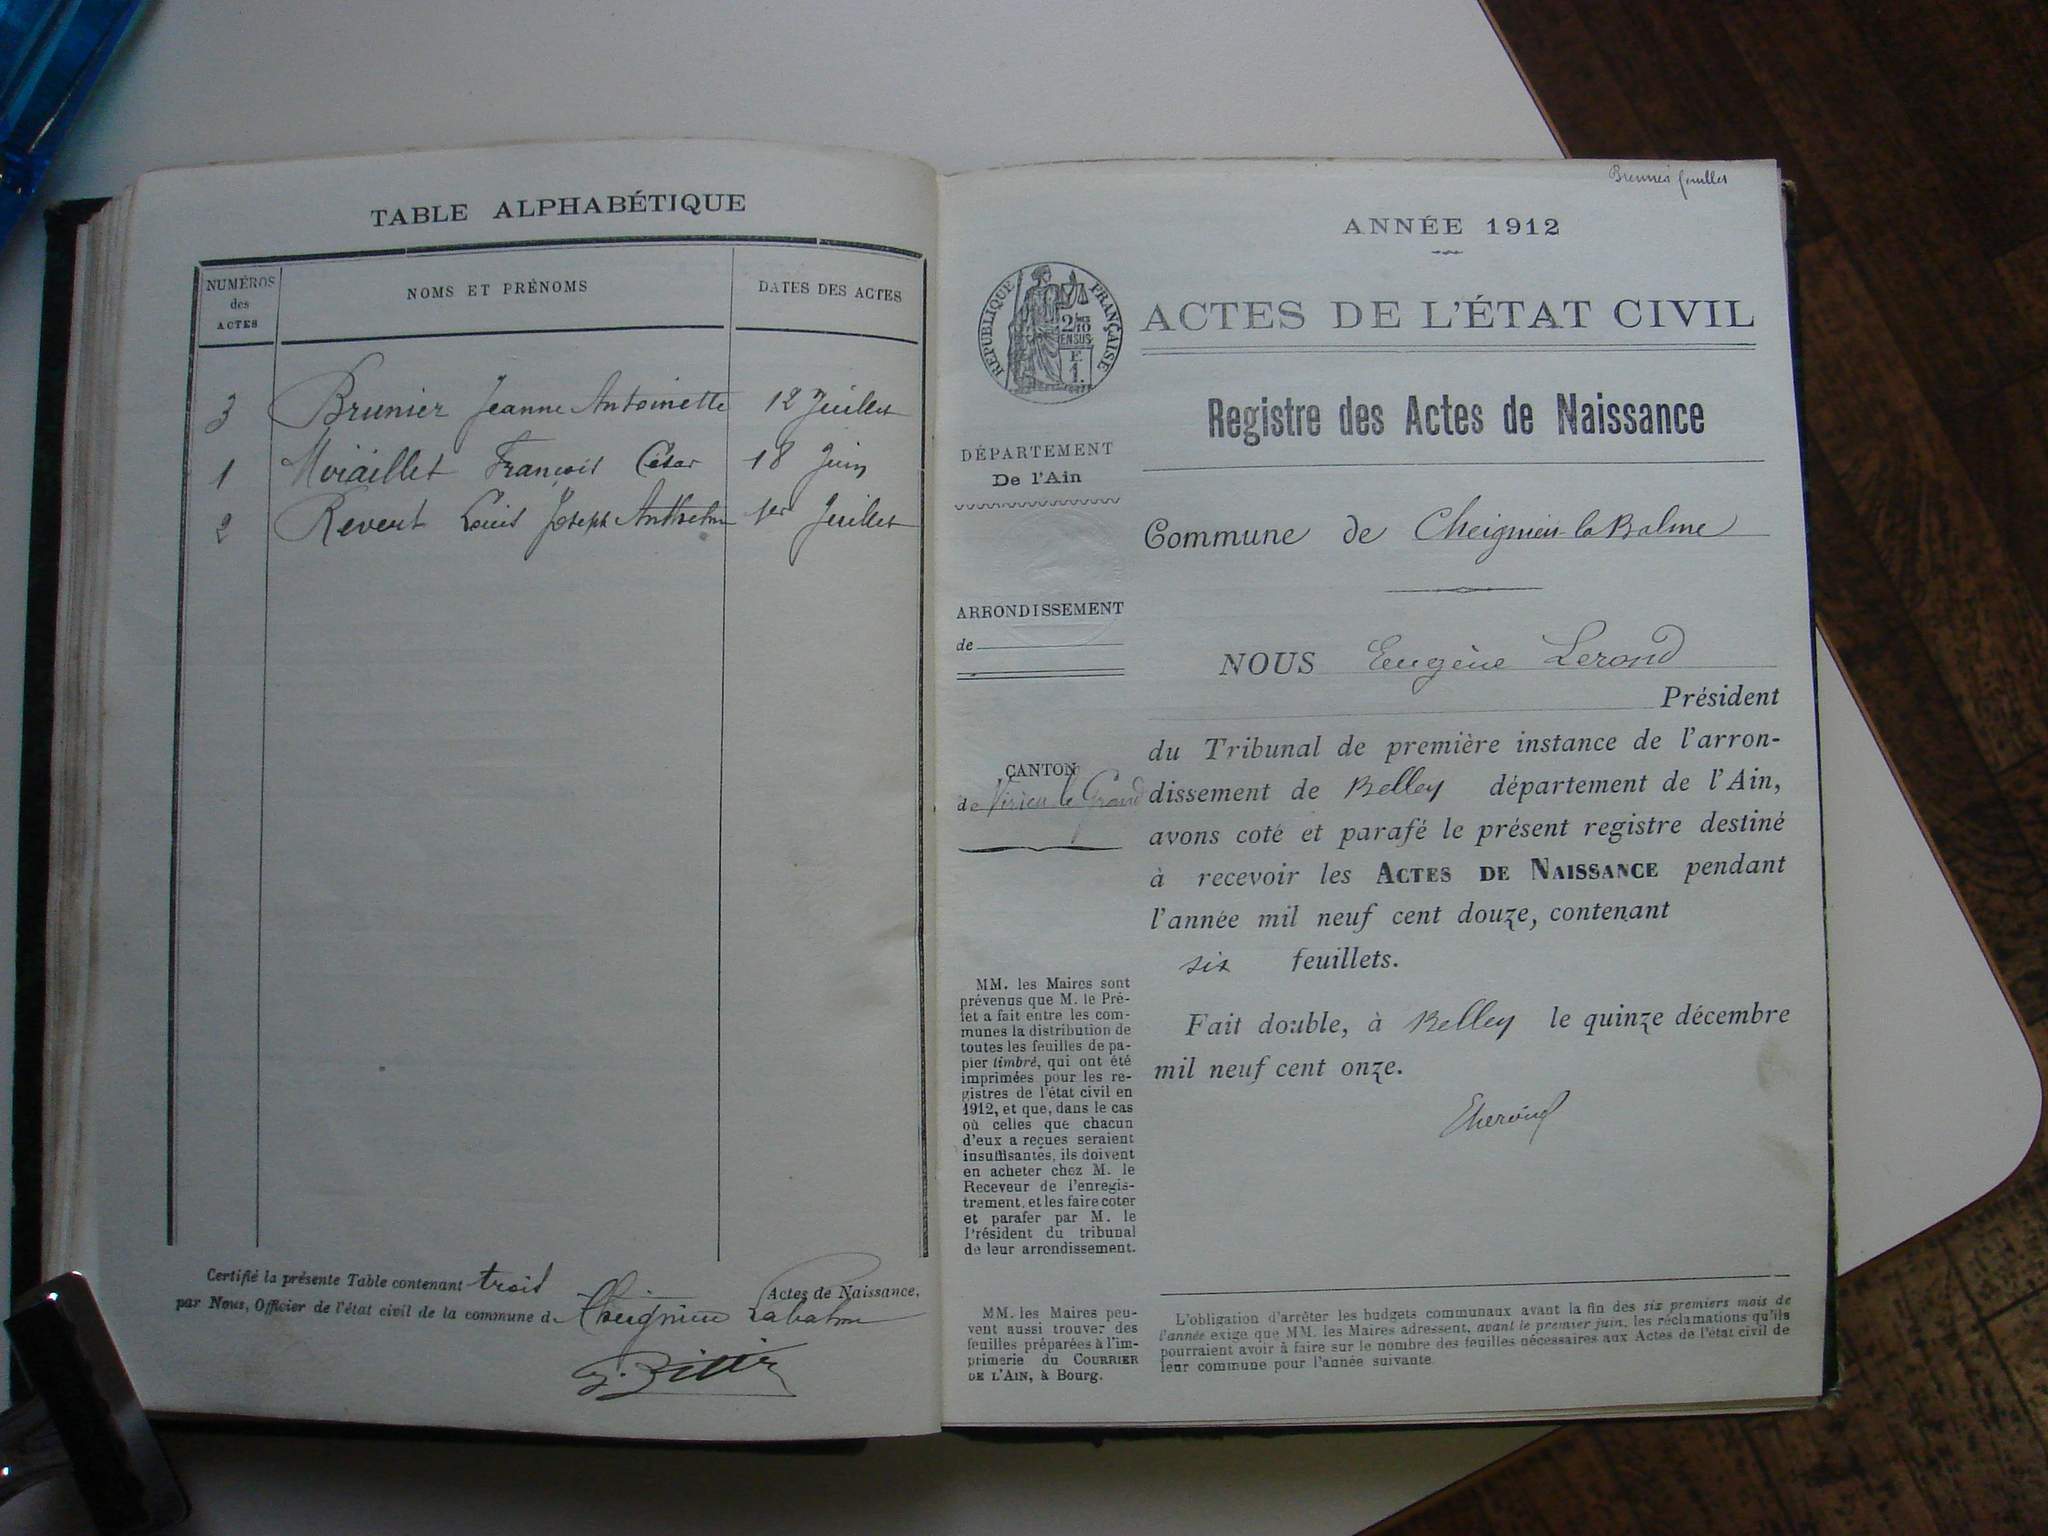 TABLE ALPHABÉTIQUE
NUMÉROS
des
ACTES
NOMS ET PRÉNOMS
DATES DES ACTES
3 Brunier Jeanne Antoinette 12 Juillet
1 François César 18 Juin
2 Revert Louis Joseph Anthelme 1er Juillet
Certifié la présente Table contenant trois Actes de Naissance,
par Nous, Officier de l'état civil de la commune de Cheignieu Labalme
ANNÉE 1912
RÉPUBLIQUE FRANÇAISE
2/10
EN SUS
F.
1.
ACTES DE L'ÉTAT CIVIL
Registre des Actes de Naissance
DÉPARTEMENT
De l'Ain
Commune de Cheignieu-la Balme
ARRONDISSEMENT
de
NOUS Eugène Lerond
Président
du Tribunal de première instance de l'arron-
dissement de Belley département de l'Ain,
avons coté et parafé le présent registre destiné
à recevoir les ACTES DE NAISSANCE pendant
l'année mil neuf cent douze, contenant
six feuillets.
Fait double, à Belley le quinze décembre
mil neuf cent onze.
CANTON
de Virieu le Grand
MM. les Maires sont
prévenus que M. le Pré-
fet a fait entre les com-
munes la distribution de
toutes les feuilles de pa-
pier timbré, qui ont été
imprimées pour les re-
gistres de l'état civil en
1912, et que, dans le cas
où celles que chacun
d'eux a reçues seraient
insuffisantes, ils doivent
en acheter chez M. le
Receveur de l'enregis-
trement, et les faire coter
et parafer par M. le
Président du tribunal
de leur arrondissement.
MM. les Maires peu-
vent aussi trouver des
feuilles préparées à l'im-
primerie du COURRIER
DE L'AIN, à Bourg.
L'obligation d'arrêter les budgets communaux avant la fin des six premiers mois de
l'année exige que MM. les Maires adressent, avant le premier juin, les réclamations qu'ils
pourraient avoir à faire sur le nombre des feuilles nécessaires aux Actes de l'état civil de
leur commune pour l'année suivante.